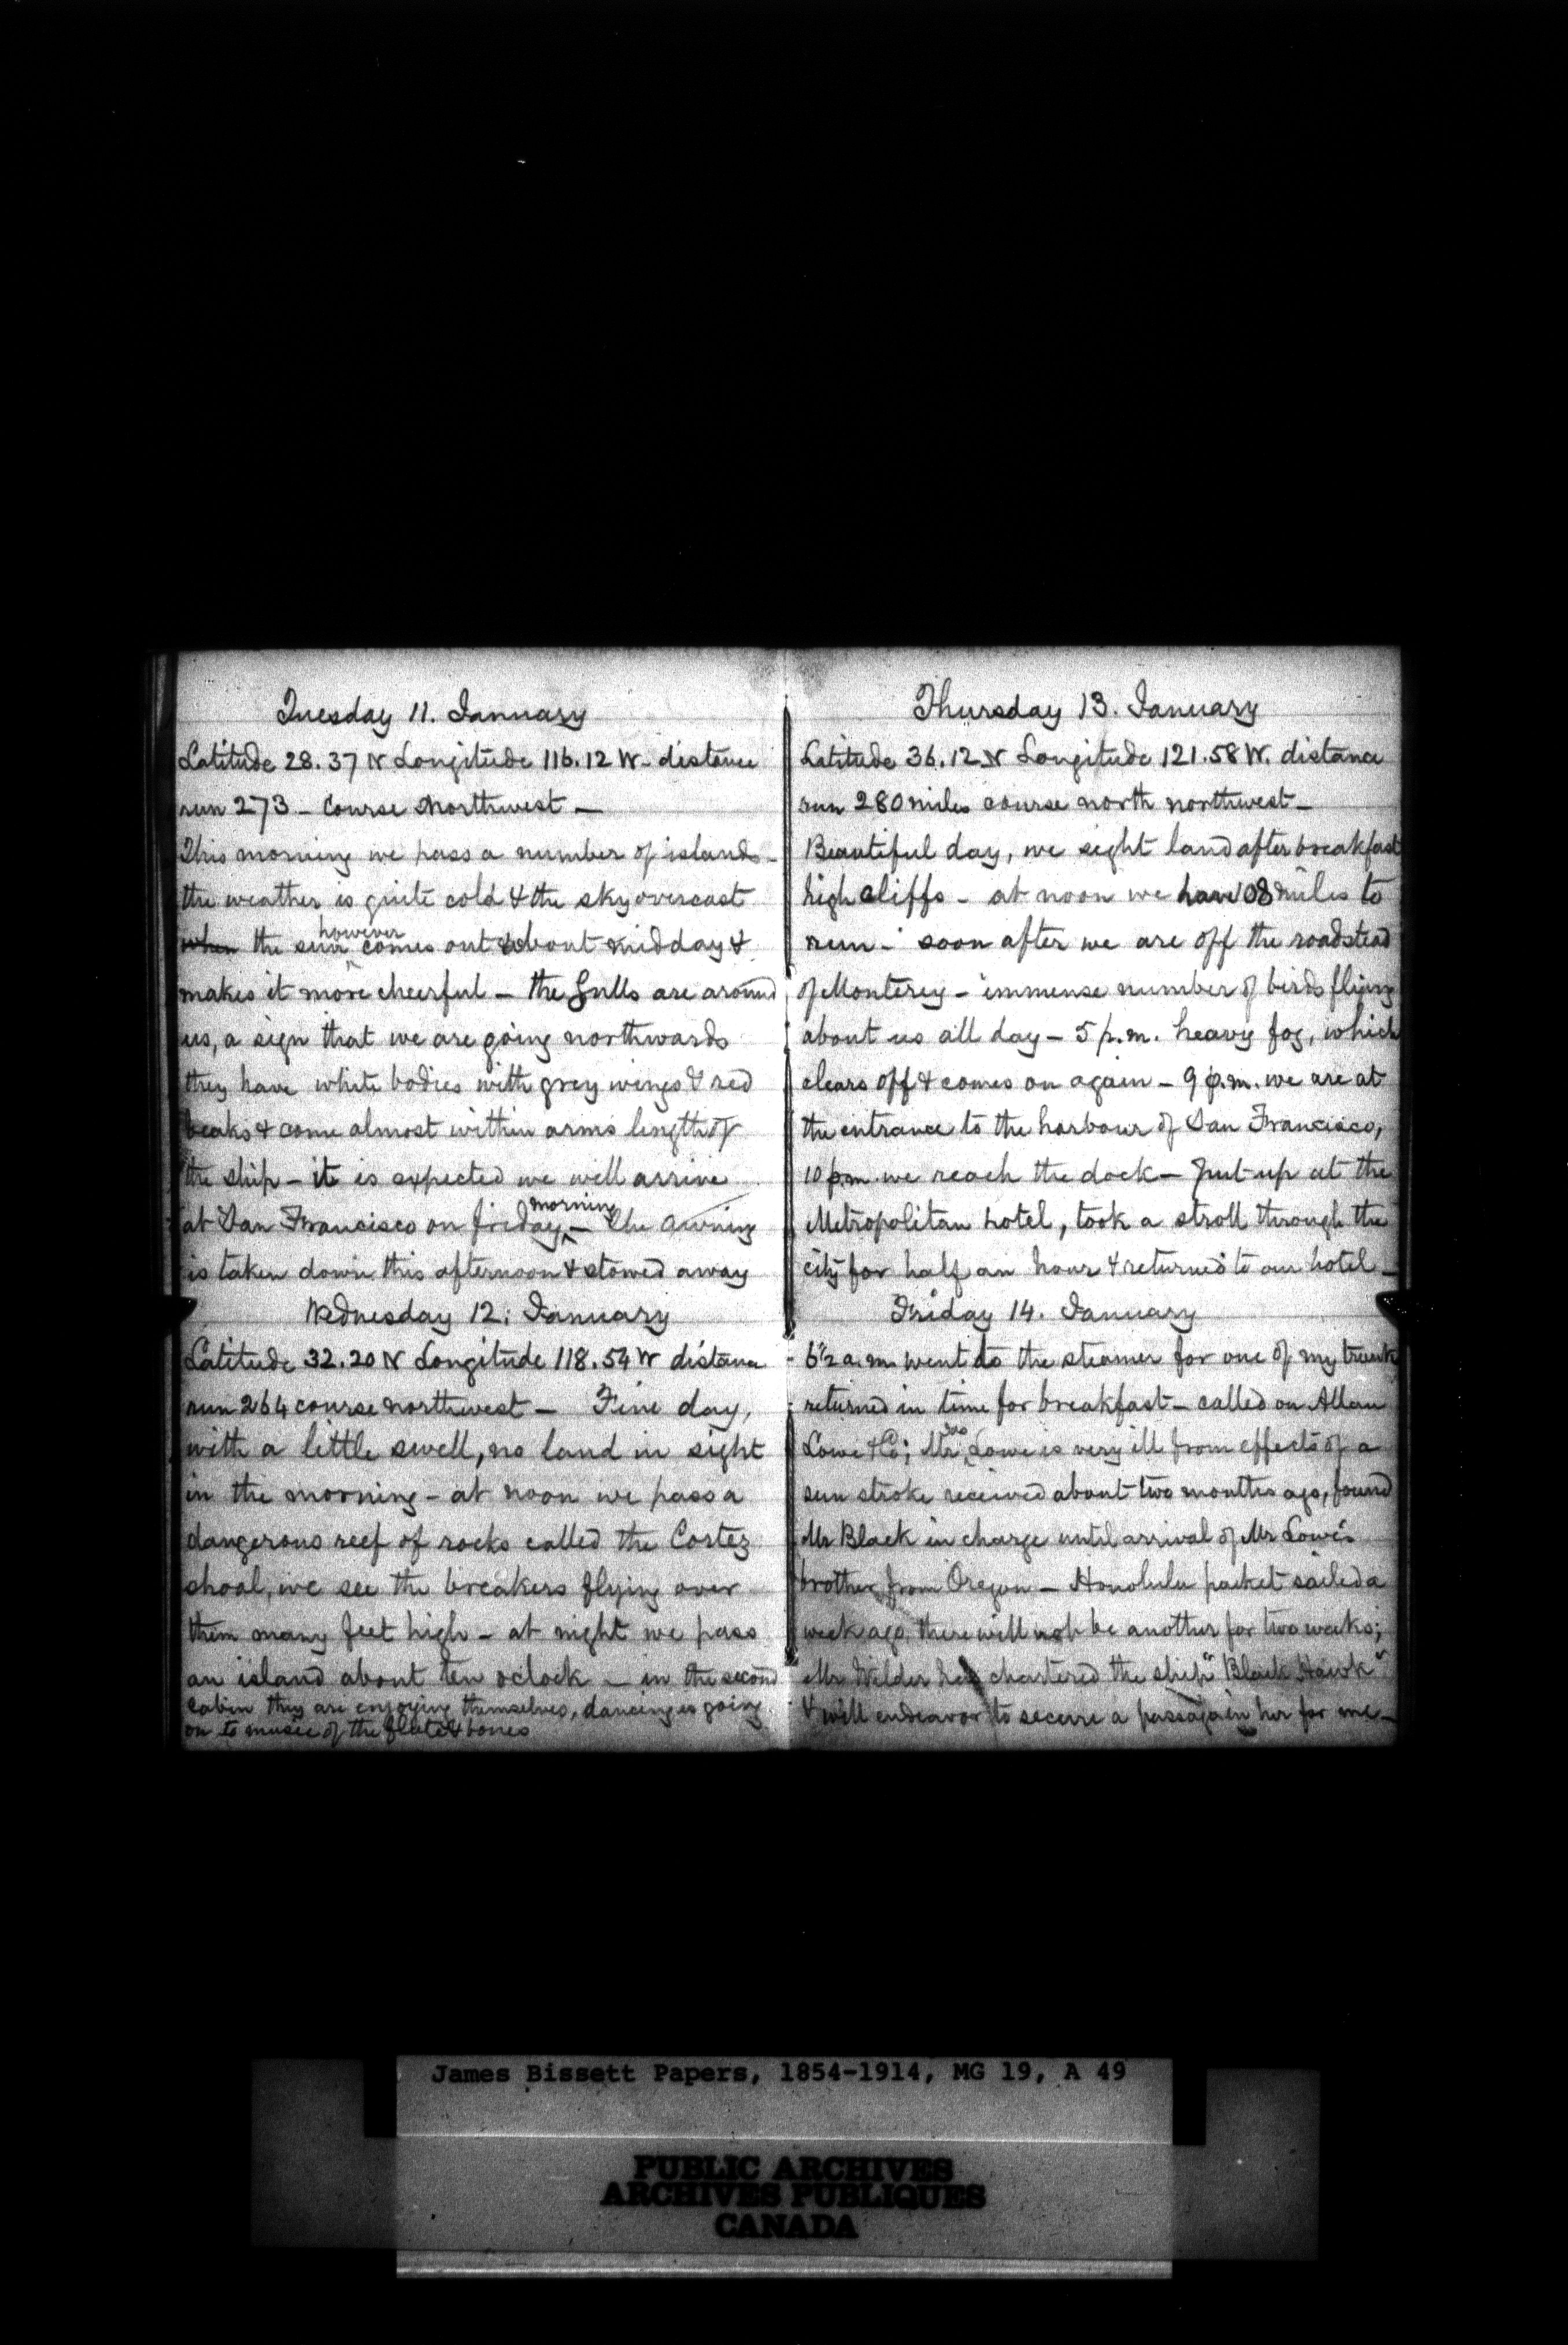 Tuesday 11. January
Latitude 28.37 N Longitude 116.12 W - distance
run 273 - Course Northwest -
This morning we pass a number of islands -
the weather is quite cold & the sky overcast
when the sun however comes out about midday &
makes it more cheerful - the Gulls are around
us, a sign that we are going northwards
they have white bodies with grey wings & red
beaks & come almost within arms length of
the ship - it is expected we will arrive
at San Francisco on friday morning - The Awning
is taken down this afternoon & stowed away
Wednesday 12. January
Latitude 32.20 N Longitude 118.54 W distance
run 264 course northwest - Fine day,
with a little swell, no land in sight
in the morning - at noon we pass a
dangerous reef of rocks called the Cortez
shoal, we see the breakers flying over
them many feet high - at night we pass
an island about ten oclock - in the second
cabin they are enjoying themselves, dancing is going
on to music of the flute & bones
Thursday 13. January
Latitude 36.12 N Longitude 121.58 W. distance
run 280 miles course north northwest -
Beautiful day, we sight land after breakfast
high cliffs - at noon we have 108 miles to
run - soon after we are off the roadstead
of Monterey - immense number of birds flying
about us all day - 5 p.m. heavy fog, which
clears off & comes on again - 9 p.m. we are at
the entrance to the harbour of San Francisco,
10 p.m. we reach the dock - put up at the
Metropolitan hotel, took a stroll through the
city for half an hour & returned to our hotel -
Friday 14. January
6 1/2 a.m. went to the steamer for one of my trunks
returned in time for breakfast - called on Allan
Lowe & Co; Mr Jas Lowe is very ill from effects of a
sun stroke received about two months ago, found
Mr Black in charge until arrival of Mr Lowe's
brother from Oregon - Honolulu packet sailed a
week ago, there will not be another for two weeks;
Mr Wilder has chartered the ship "Black Hawk"
& will endeavor to secure a passage in her for me -
James Bissett Papers, 1854-1914, MG 19, A 49
PUBLIC ARCHIVES
ARCHIVES PUBLIQUES
CANADA